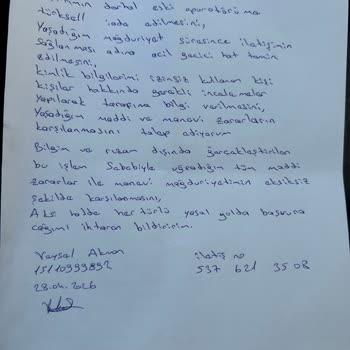 derhal eski operatörüme
türksell iade edilmesini,
Yaşadığım mağduriyet süresince iletişimin
sağlanması adına acil geçici hat temin
edilmesini,
kimlik bilgilerimi izinsiz kullanan kişi
kişiler hakkında gerekli incelemeler
Yapılarak tarafıma bilgi verilmesini,
Yaşadığım maddi ve manevi zararların
karşılanmasını talep ediyorum
Bilgim ve rızam dışında gerçekleştirilen
bu işlem Sebebiyle uğradığım tüm maddi
zararlar ile manevi mağduriyetimin eksiksiz
şekilde karşılanmasını,
Aksi halde her türlü yasal yolda başvura
cağımı ihtaren bildiririm.
Vaysal Akman iletiş no
15110999892 537 621 35 08
28.04.2026